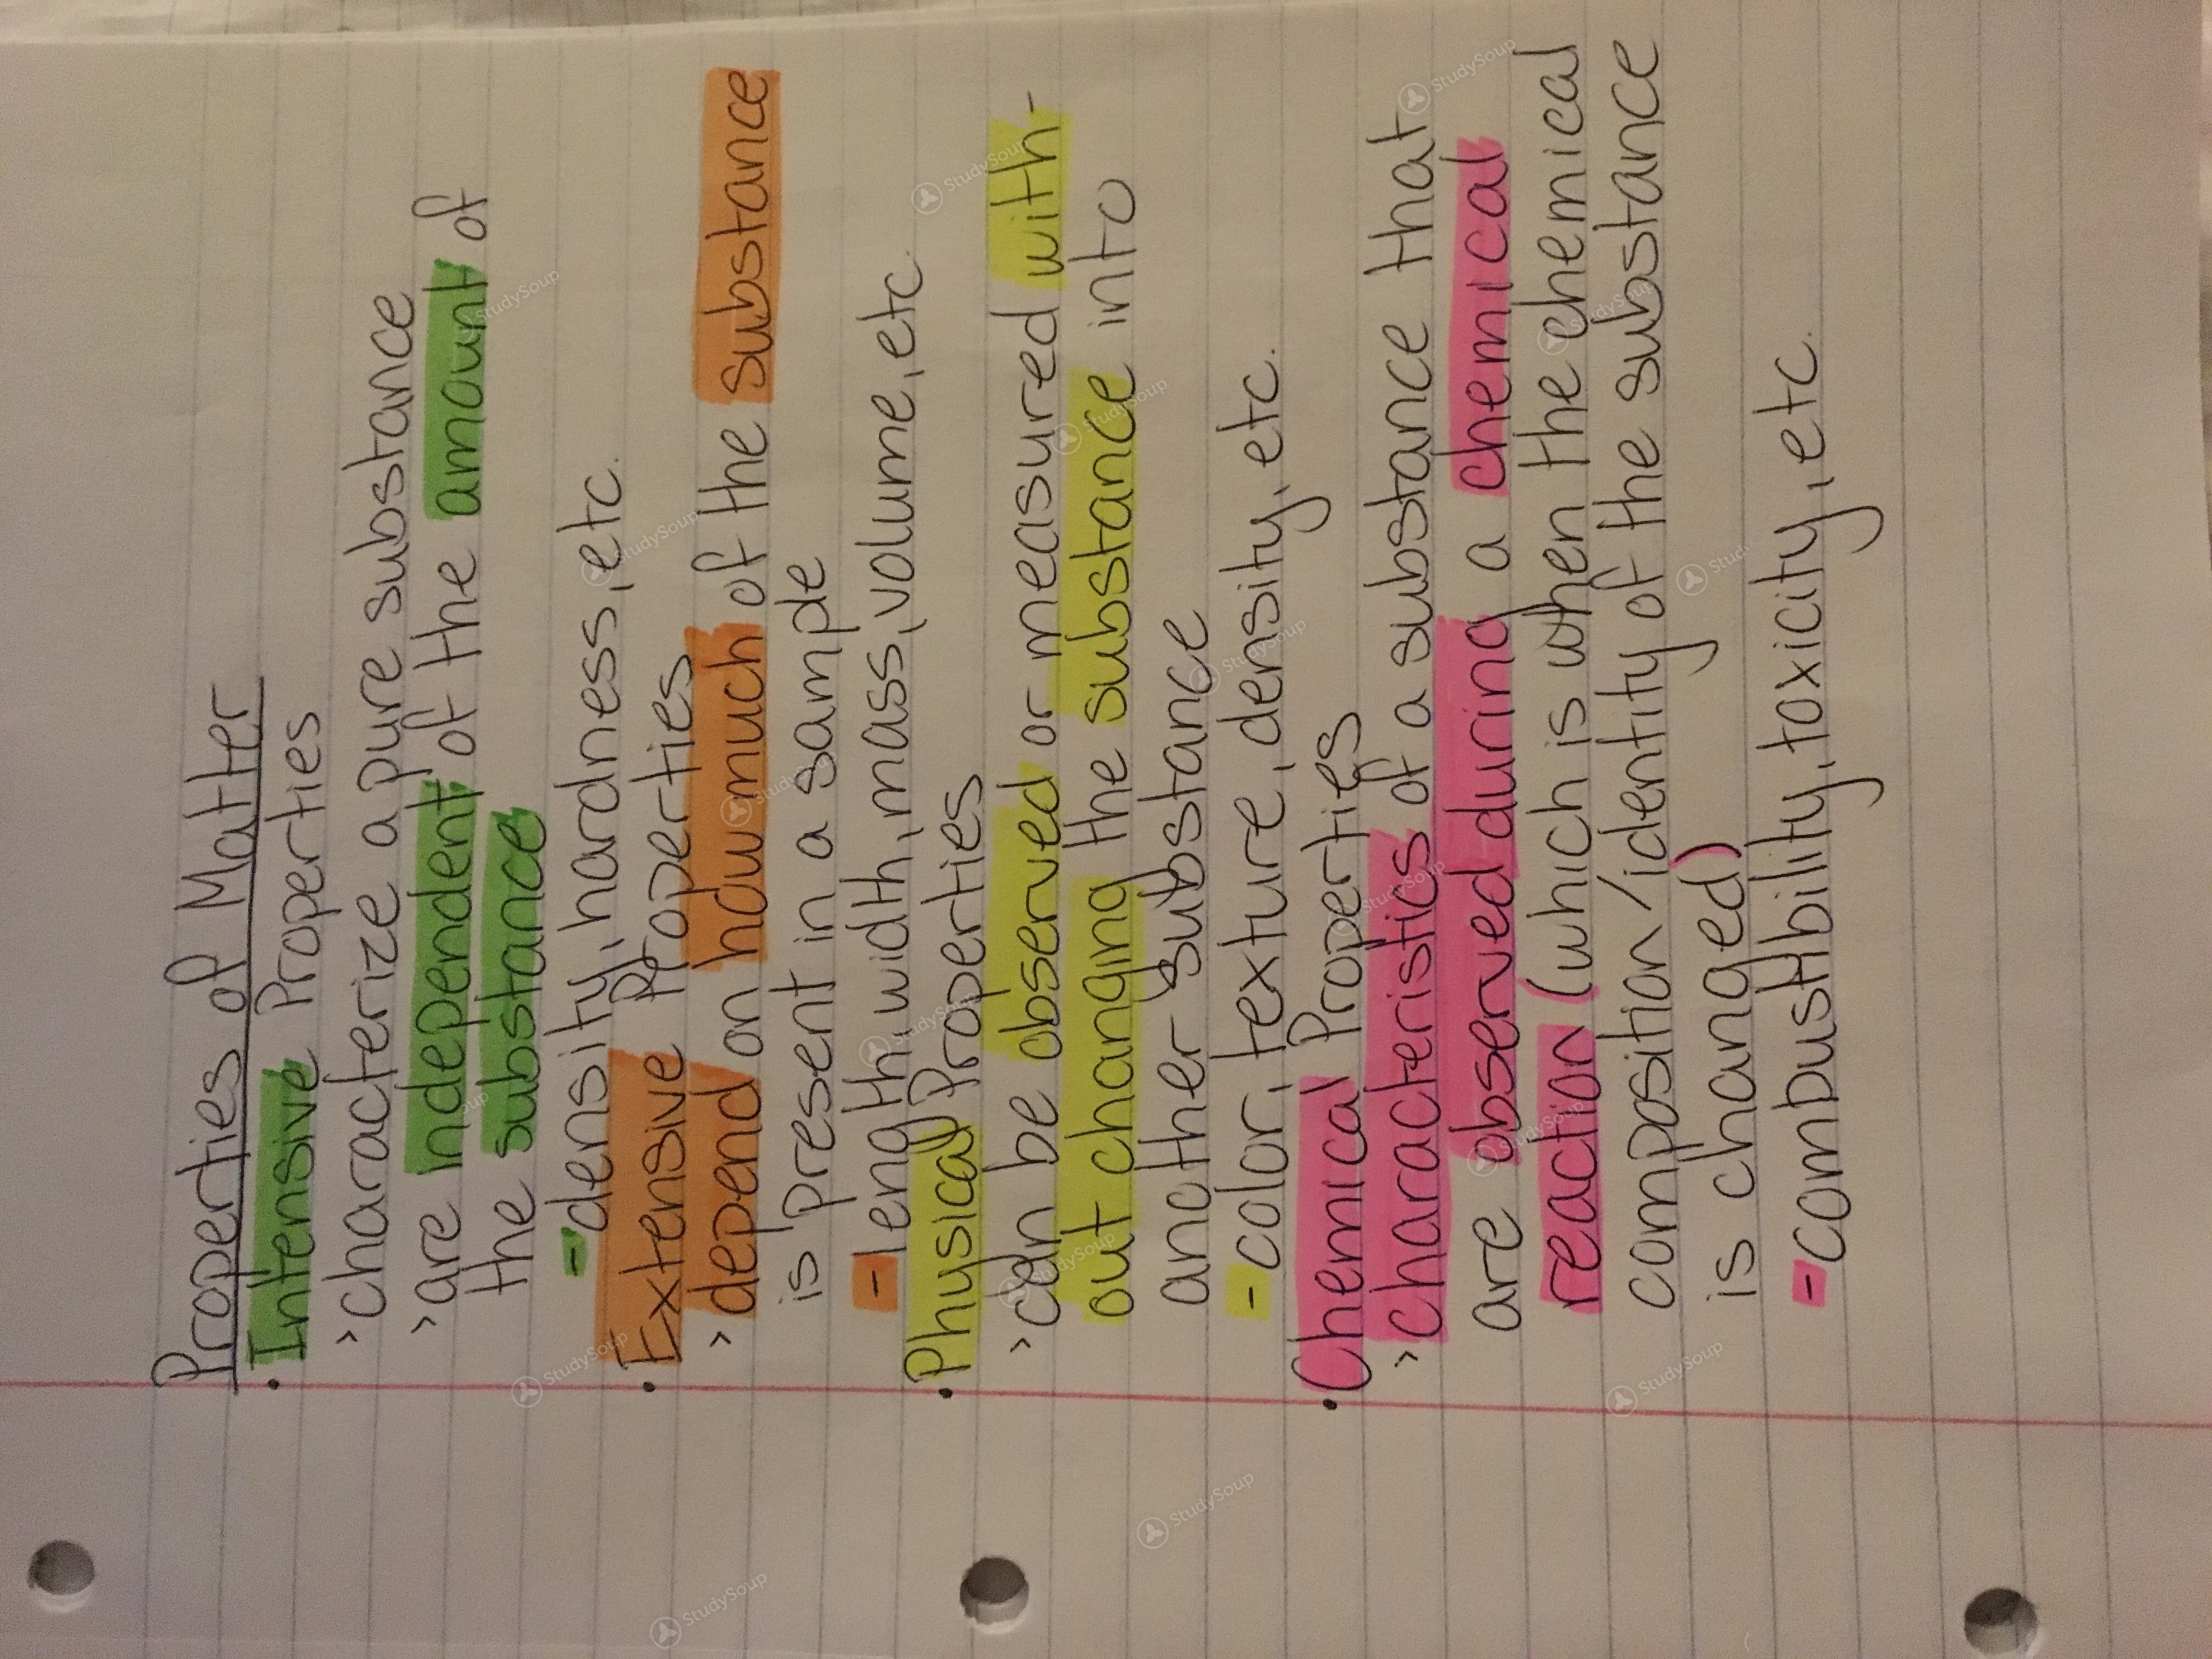 Properties of Matter
• Intensive Properties
> characterize a pure substance
> are independent of the amount of
the substance
- density, hardness, etc.
• Extensive Properties
> depend on how much of the substance
is present in a sample
- length, width, mass, volume, etc.
• Physical Properties
> can be observed or measured with-
out changing the substance into
another substance
- color, texture, density, etc.
• Chemical Properties
> characteristics of a substance that
are observed during a chemical
reaction (which is when the chemical
composition/identity of the substance
is changed)
- combustibility, toxicity, etc.
StudySoup
StudySoup
StudySoup
StudySoup
StudySoup
StudySoup
StudySoup
StudySoup
StudySoup
StudySoup
StudySoup
StudySoup
StudySoup